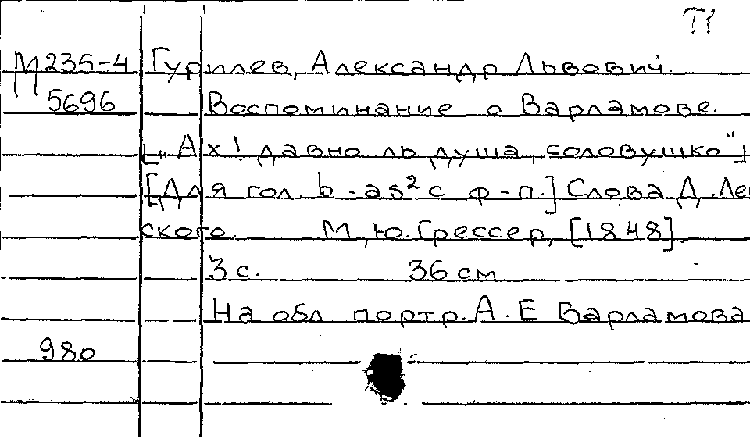 П
М 235-4 Гурилев, Александр Львович.
5696 Воспоминание о Варламове.
[„Ах! давно ль душа, соловушко"]
[Для гол. b-as² с ф-п.] Слова Д. Лен
ского. М, Ю. Грессер, [1848]
3 с. 36 см
На обл портр. А. Е Варламова
980